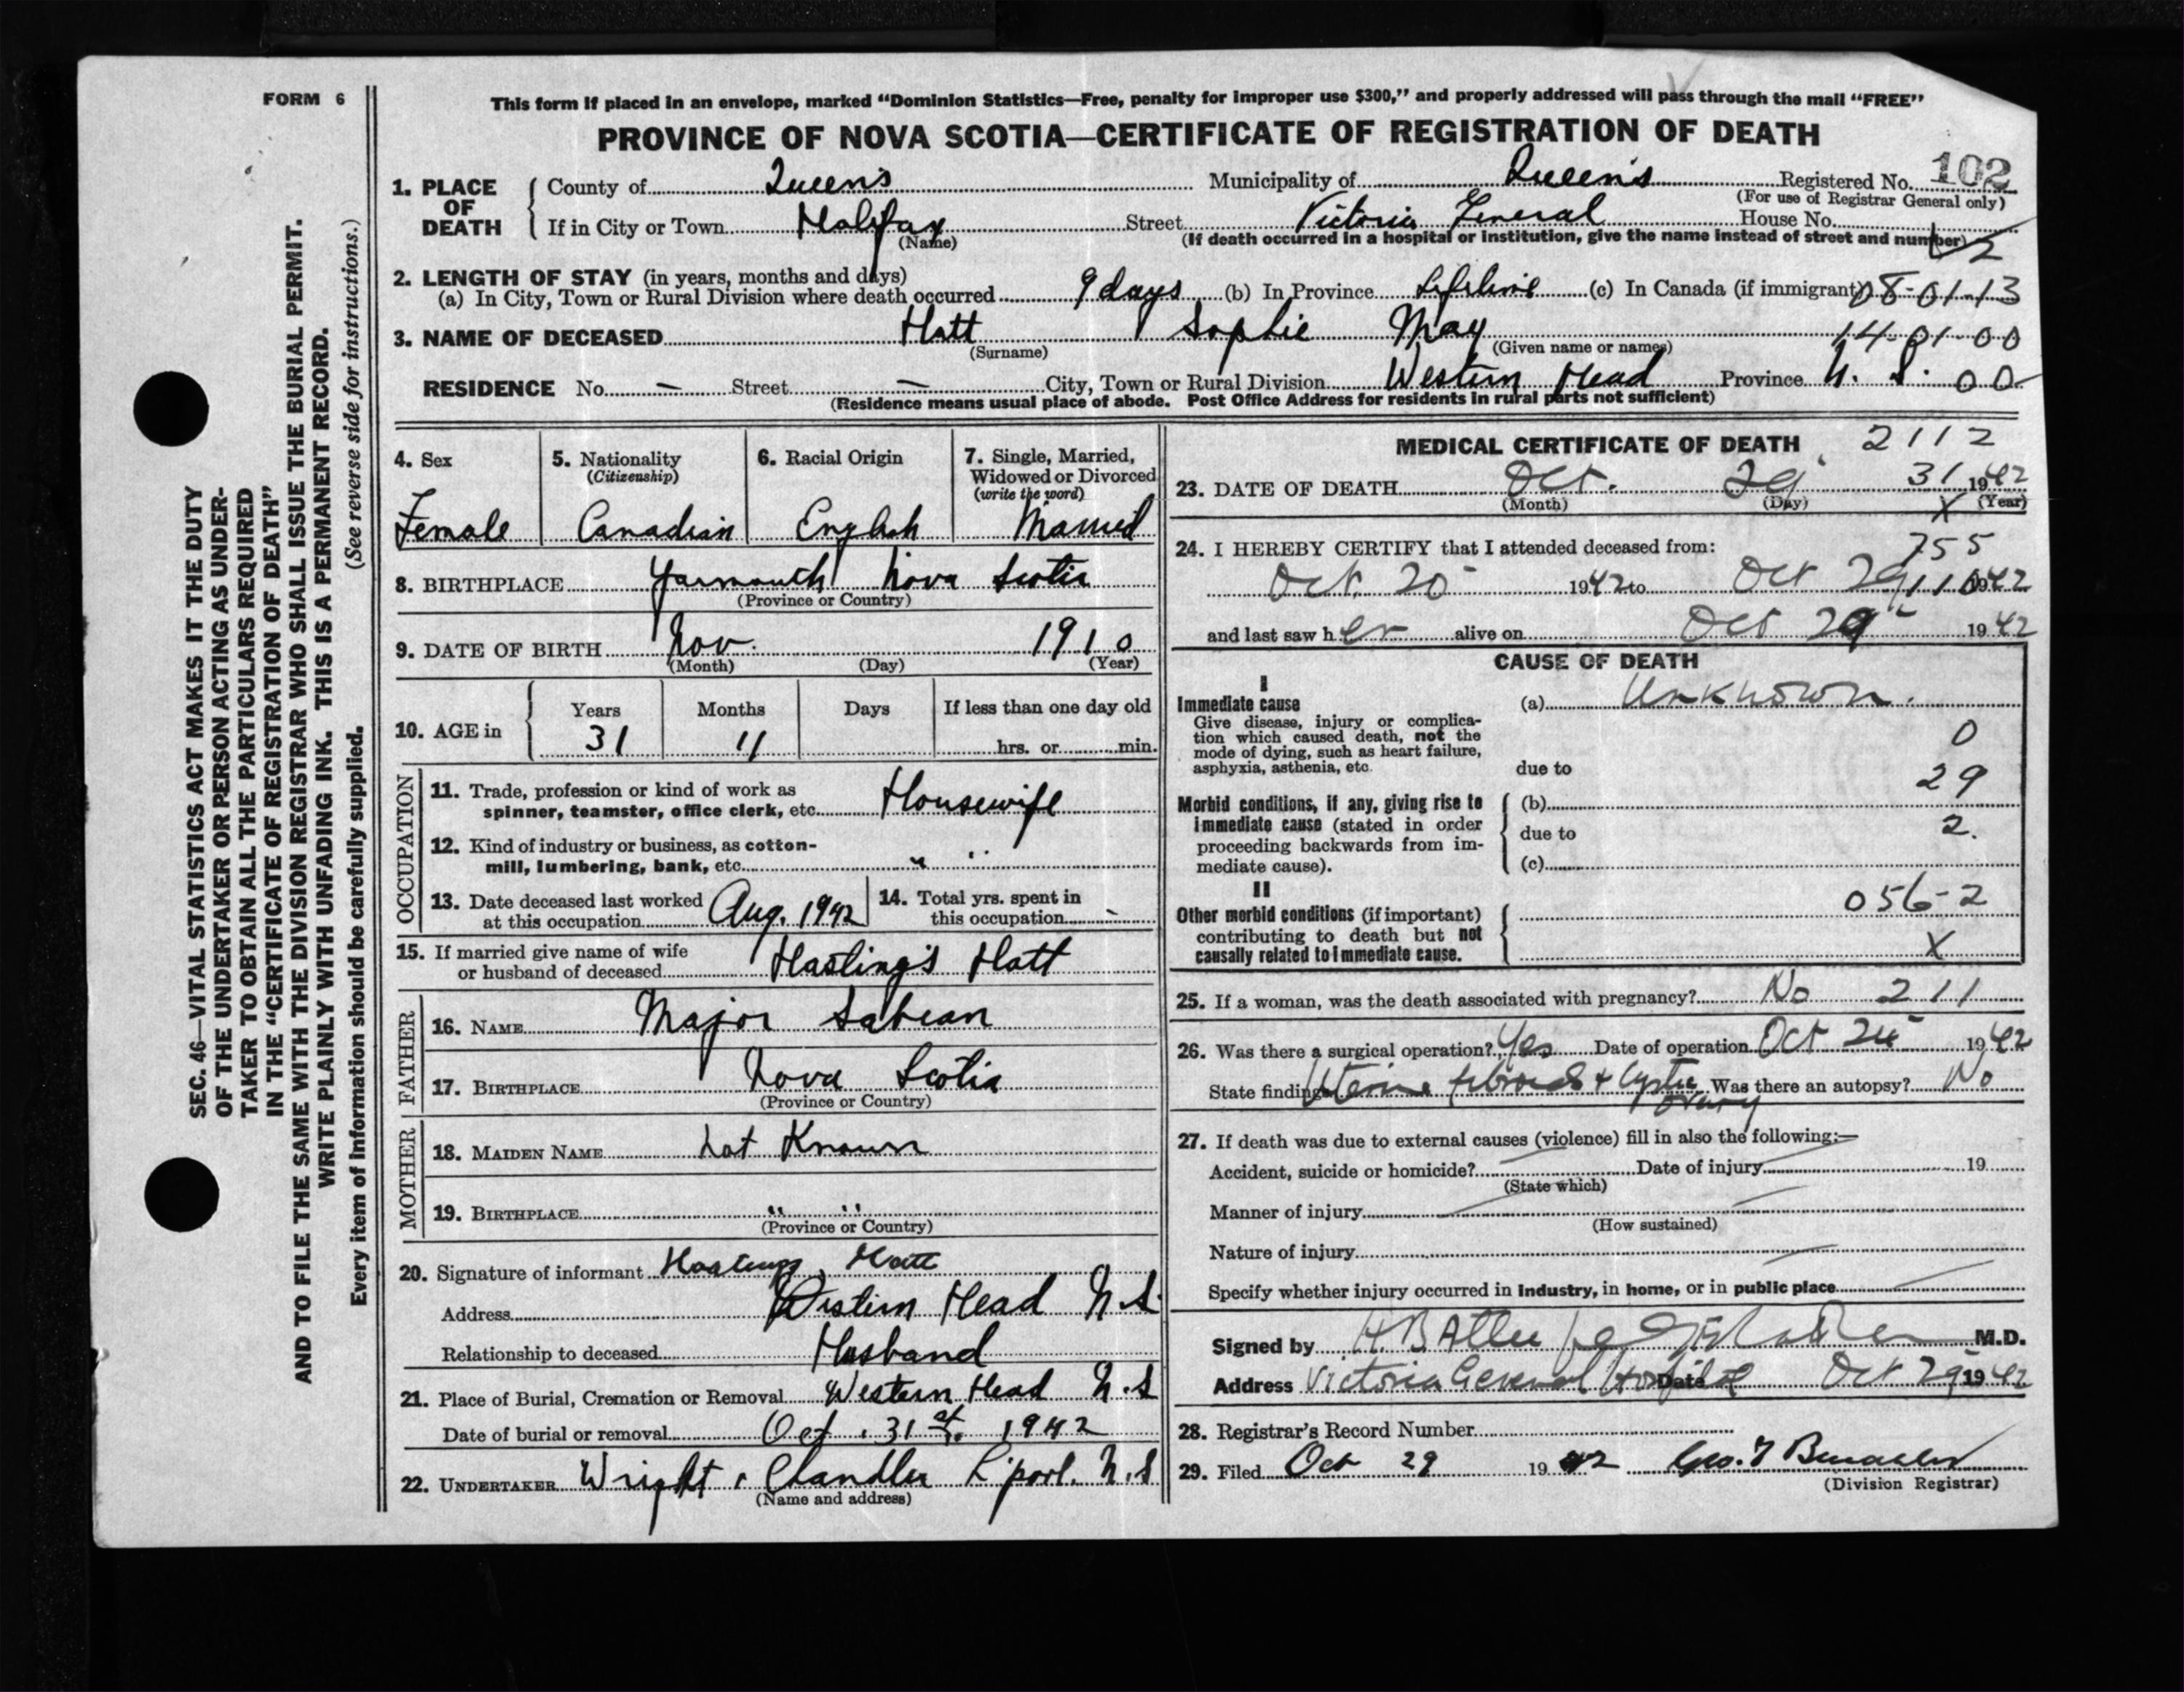 FORM 6
This form if placed in an envelope, marked “Dominion Statistics—Free, penalty for improper use $300,” and properly addressed will pass through the mail “FREE”
PROVINCE OF NOVA SCOTIA—CERTIFICATE OF REGISTRATION OF DEATH
1. PLACE OF DEATH County of Queens Municipality of Queen's Registered No. 102
(For use of Registrar General only)
If in City or Town Halifax Street Victoria General House No.
(Name) (If death occurred in a hospital or institution, give the name instead of street and number)
2. LENGTH OF STAY (in years, months and days)
(a) In City, Town or Rural Division where death occurred 9 days (b) In Province Lifetime (c) In Canada (if immigrant) 08-01-13
3. NAME OF DECEASED Hatt Sophie May 14-01-00
(Surname) (Given name or names)
RESIDENCE No. — Street — City, Town or Rural Division Western Head Province N. S. 00
(Residence means usual place of abode. Post Office Address for residents in rural parts not sufficient)
4. Sex 5. Nationality (Citizenship) 6. Racial Origin 7. Single, Married, Widowed or Divorced (write the word)
Female Canadian English Married
8. BIRTHPLACE Yarmouth Nova Scotia
(Province or Country)
9. DATE OF BIRTH Nov. 1910
(Month) (Day) (Year)
10. AGE in Years Months Days If less than one day old
31 11 hrs. or min.
OCCUPATION
11. Trade, profession or kind of work as spinner, teamster, office clerk, etc. Housewife
12. Kind of industry or business, as cotton-mill, lumbering, bank, etc. " "
13. Date deceased last worked at this occupation Aug. 1942 14. Total yrs. spent in this occupation -
15. If married give name of wife or husband of deceased Hastings Hatt
FATHER
16. NAME Major Sabean
17. BIRTHPLACE Nova Scotia
(Province or Country)
MOTHER
18. MAIDEN NAME Not Known
19. BIRTHPLACE " "
(Province or Country)
20. Signature of informant Hastings Hatt
Address Western Head N.S.
Relationship to deceased Husband
21. Place of Burial, Cremation or Removal Western Head N.S
Date of burial or removal Oct. 31st 1942
22. UNDERTAKER Wright & Chandler L'pool. N.S
(Name and address)
MEDICAL CERTIFICATE OF DEATH 2112
23. DATE OF DEATH Oct. 29 31 1942
(Month) (Day) X (Year)
24. I HEREBY CERTIFY that I attended deceased from: 755
Oct. 20 1942 to Oct 29 110 1942
and last saw her alive on Oct 29 1942
CAUSE OF DEATH
I
Immediate cause (a) Unknown.
Give disease, injury or complication which caused death, not the mode of dying, such as heart failure, asphyxia, asthenia, etc. 0
due to
29
Morbid conditions, if any, giving rise to immediate cause (stated in order proceeding backwards from immediate cause). (b)
due to 2.
(c)
II
Other morbid conditions (if important) contributing to death but not causally related to immediate cause. 056-2
X
25. If a woman, was the death associated with pregnancy? No 211
26. Was there a surgical operation? Yes Date of operation Oct 24 1942
State findings Uterine fibroids + Cystic ovary Was there an autopsy? No
27. If death was due to external causes (violence) fill in also the following:—
Accident, suicide or homicide? Date of injury 19
(State which)
Manner of injury
(How sustained)
Nature of injury
Specify whether injury occurred in industry, in home, or in public place
Signed by H.B Atlee M.D.
Address Victoria General Hospital Date Oct 29 1942
28. Registrar's Record Number
29. Filed Oct 29 1942 Geo. T
(Division Registrar)
SEC. 46—VITAL STATISTICS ACT MAKES IT THE DUTY
OF THE UNDERTAKER OR PERSON ACTING AS UNDER-
TAKER TO OBTAIN ALL THE PARTICULARS REQUIRED
IN THE “CERTIFICATE OF REGISTRATION OF DEATH”
AND TO FILE THE SAME WITH THE DIVISION REGISTRAR WHO SHALL ISSUE THE BURIAL PERMIT.
WRITE PLAINLY WITH UNFADING INK. THIS IS A PERMANENT RECORD.
Every item of information should be carefully supplied. (See reverse side for instructions.)